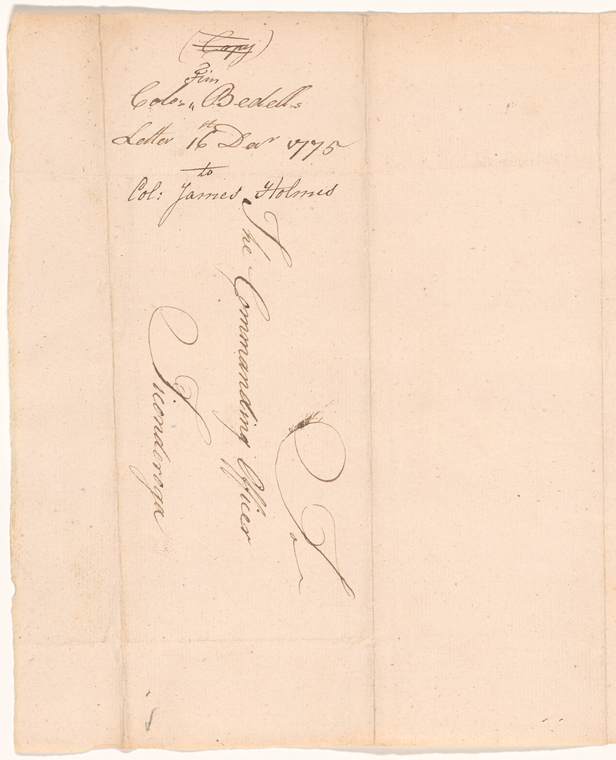 (Copy)
Tim
Colo: Bedell's
Letter 16th Decr 1775
to
Col: James Holmes
To
The Commanding Officer
Ticonderoga